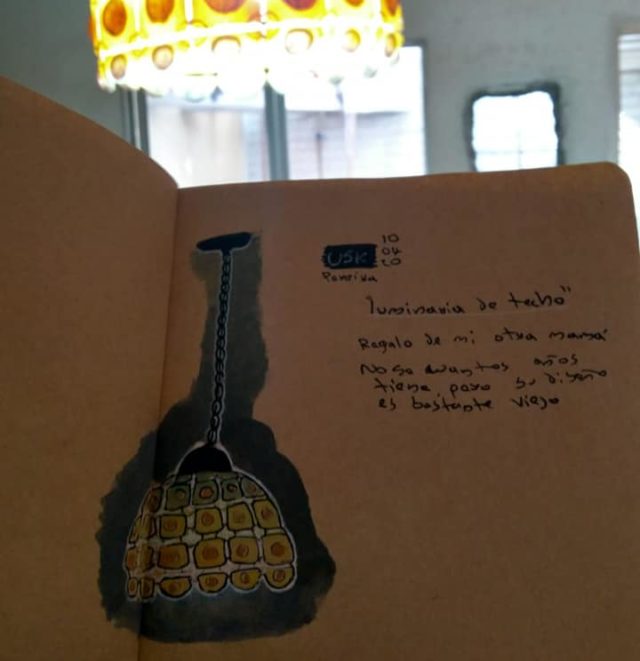 USK
10
04
20
Pereira
"Luminaria de techo"
Regalo de mi otra mamá
No se cuantos años
tiene pero su diseño
es bastante viejo